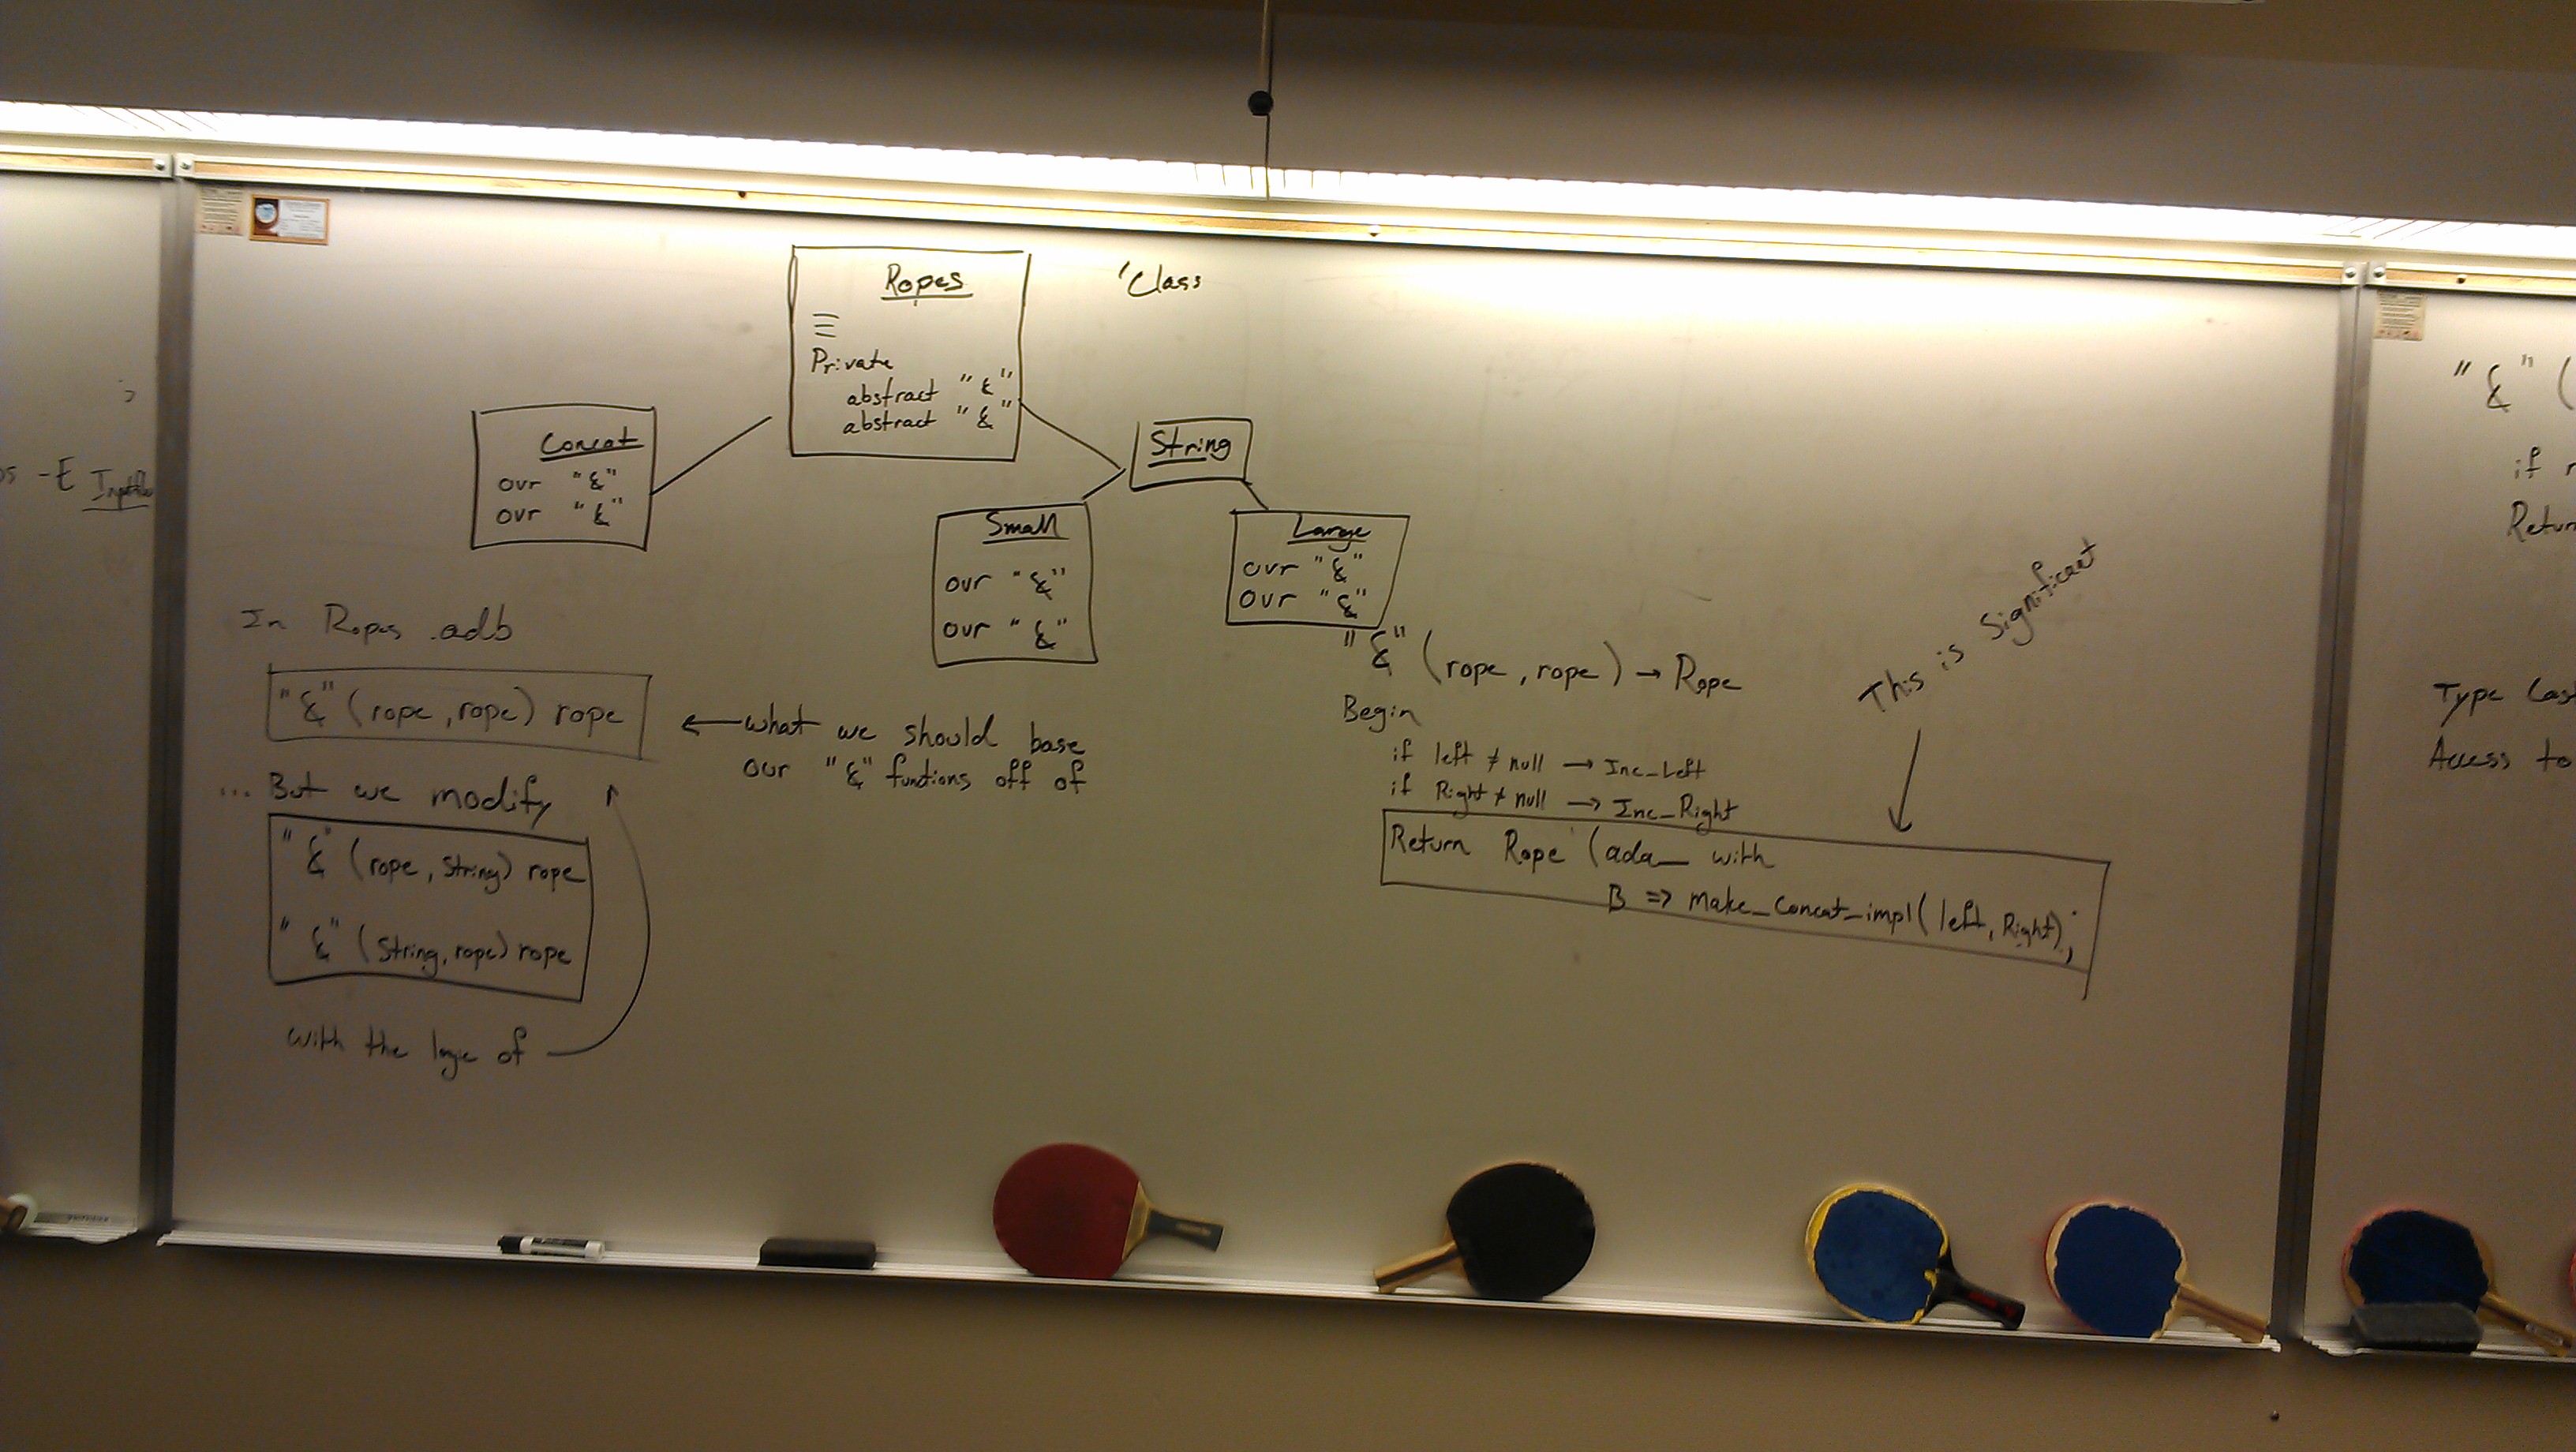 Ropes
Private
abstract "&"
abstract "&"
'Class
Concat
our "&"
our "&"
String
Small
our "&"
our "&"
Large
our "&"
our "&"
In Ropes .adb
"&" (rope, rope) rope
← what we should base
our "&" functions off of
... But we modify
"&" (rope, String) rope
"&" (String, rope) rope
with the logic of
"&" (rope, rope) → Rope
Begin
if left ≠ null → Inc_Left
if Right ≠ null → Inc_Right
Return Rope' (ada_ with
B => make_Concat_impl(left, Right);
This is Significant
-E
"&" (
if
Return
Type
Access to